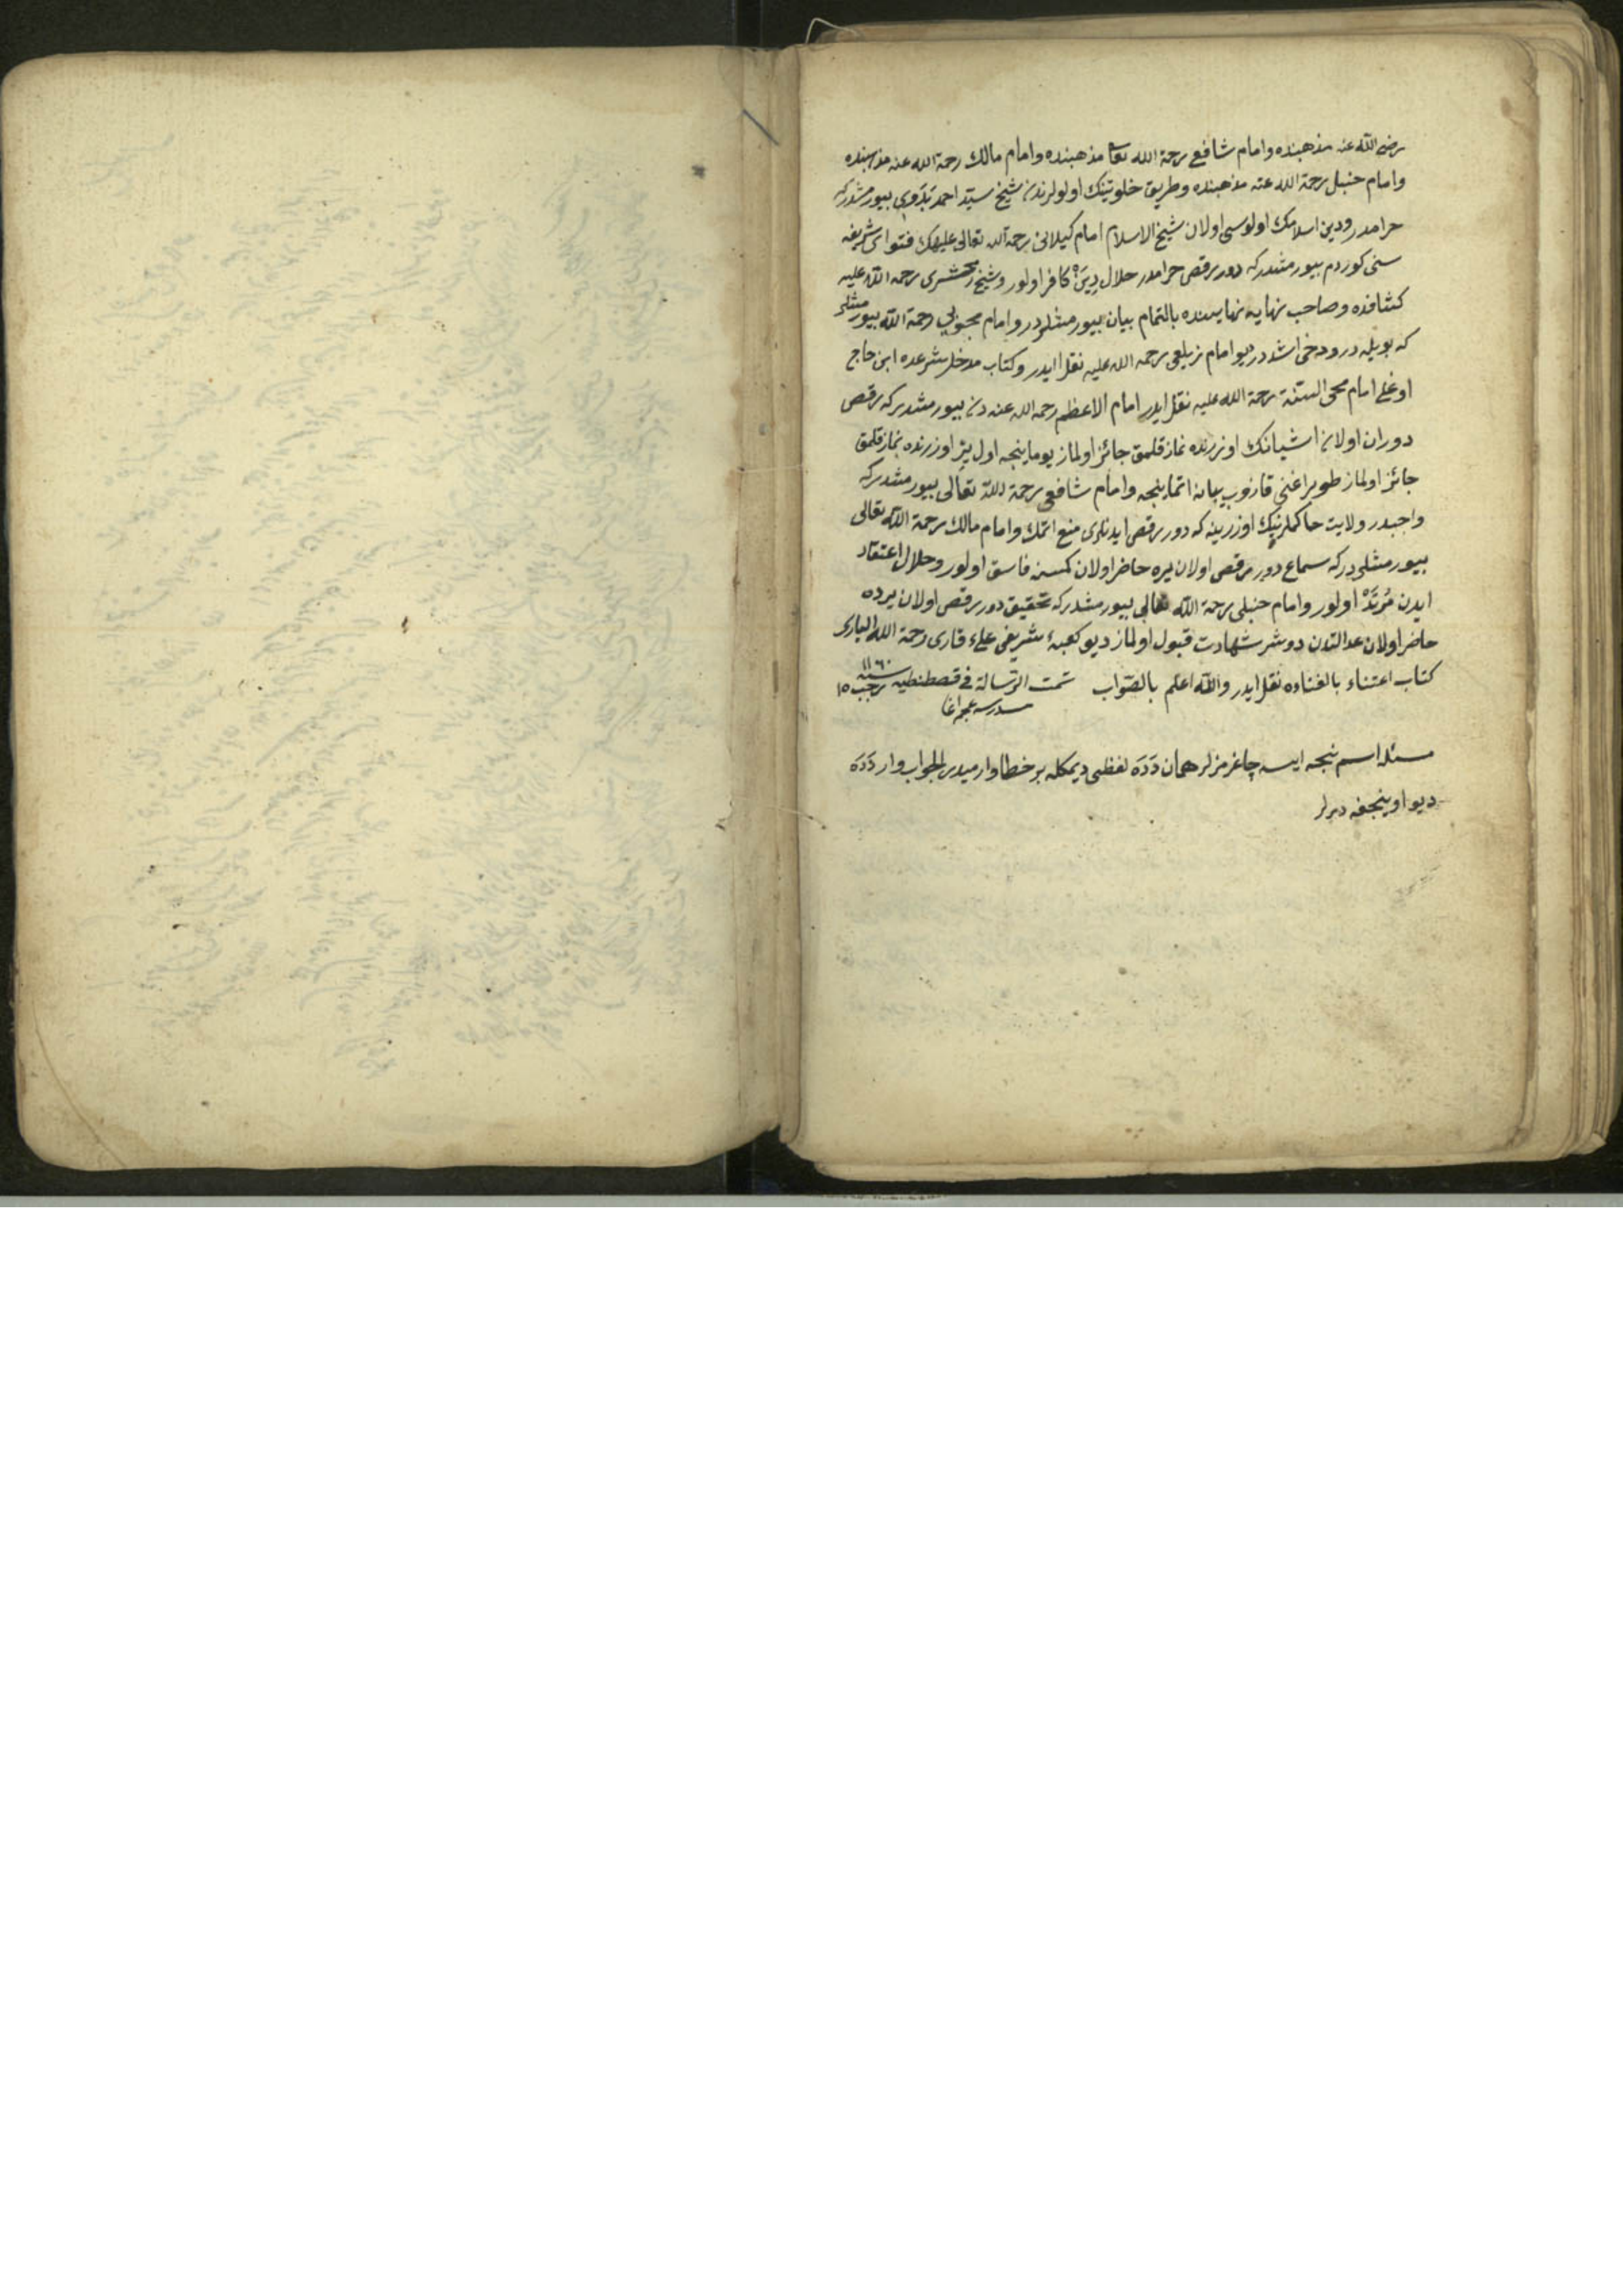 رضى الله عنه مذهبنده وامام شافعى رحمة الله تعا مذهبنده وامام مالك رحمة الله عنه مذهبنده
وامام حنبل رحمة الله عنه مذهبنده وطريق خلوتينك اولولرندن شيخ سيد احمد بدوى بيورمشدركه
حرامدر ودين اسلامك اولوسى اولان شيخ الاسلام امام كيلانى رحمة الله تعالى عليهك فتواى شريفه
سنى كوردم بيورمشدركه دور رقص حرامدر حلال دين كافر اولور وشيخ زمخشرى رحمة الله عليه
كشافنده وصاحب نهايه نهايه سنده بالتمام بيان بيورمشلردر وامام محبوبى رحمة الله بيورمشلر
كه بويله در ودخى اشددر ديو امام زيلعى رحمه الله عليه نقل ايدر وكتاب مدخل شرعده ابن حاج
اوغلى امام محى السنة رحمة الله عليه نقل ايدر امام الاعظم رحمه الله عنه دن بيورمشدركه رقص
دوران اولان اشيانك اوزرنده نماز قلمق جائز اولماز يوماينجه اول يير اوزرنده نماز قلمق
جائز اولماز طوپراغنى قازوب يبانه اتماينجه وامام شافعى رحمة الله تعالى بيورمشدركه
واجبدر ولايت حاكملرينك اوزرينه كه دور رقص ايدنلرى منع اتمك وامام مالك رحمة الله تعالى
بيورمشلردركه سماع دور رقص اولان يره حاضر اولان كمسنه فاسق اولور وحلال اعتقاد
ايدن مرتد اولور وامام حنبلى رحمة الله تعالى بيورمشدركه تحقيق دور رقص اولان يرده
حاضر اولان عدالتدن دوشر شهادت قبول اولماز ديو كعبۀ شريفى على قارى رحمة الله البارى
كتاب اعتناء بالغناءده نقل ايدر والله اعلم بالصواب تمت الرسالة فى قصطنطيه سنه ١١٦٠ رجب ١٥
مدرسه عجم اغا
مسئله اسم ينجه ايسه چاغرمزلر همان دده لفظى ديمكله بر خطا وارميدر الجواب وار دده
ديو اوينجغه ديرلر